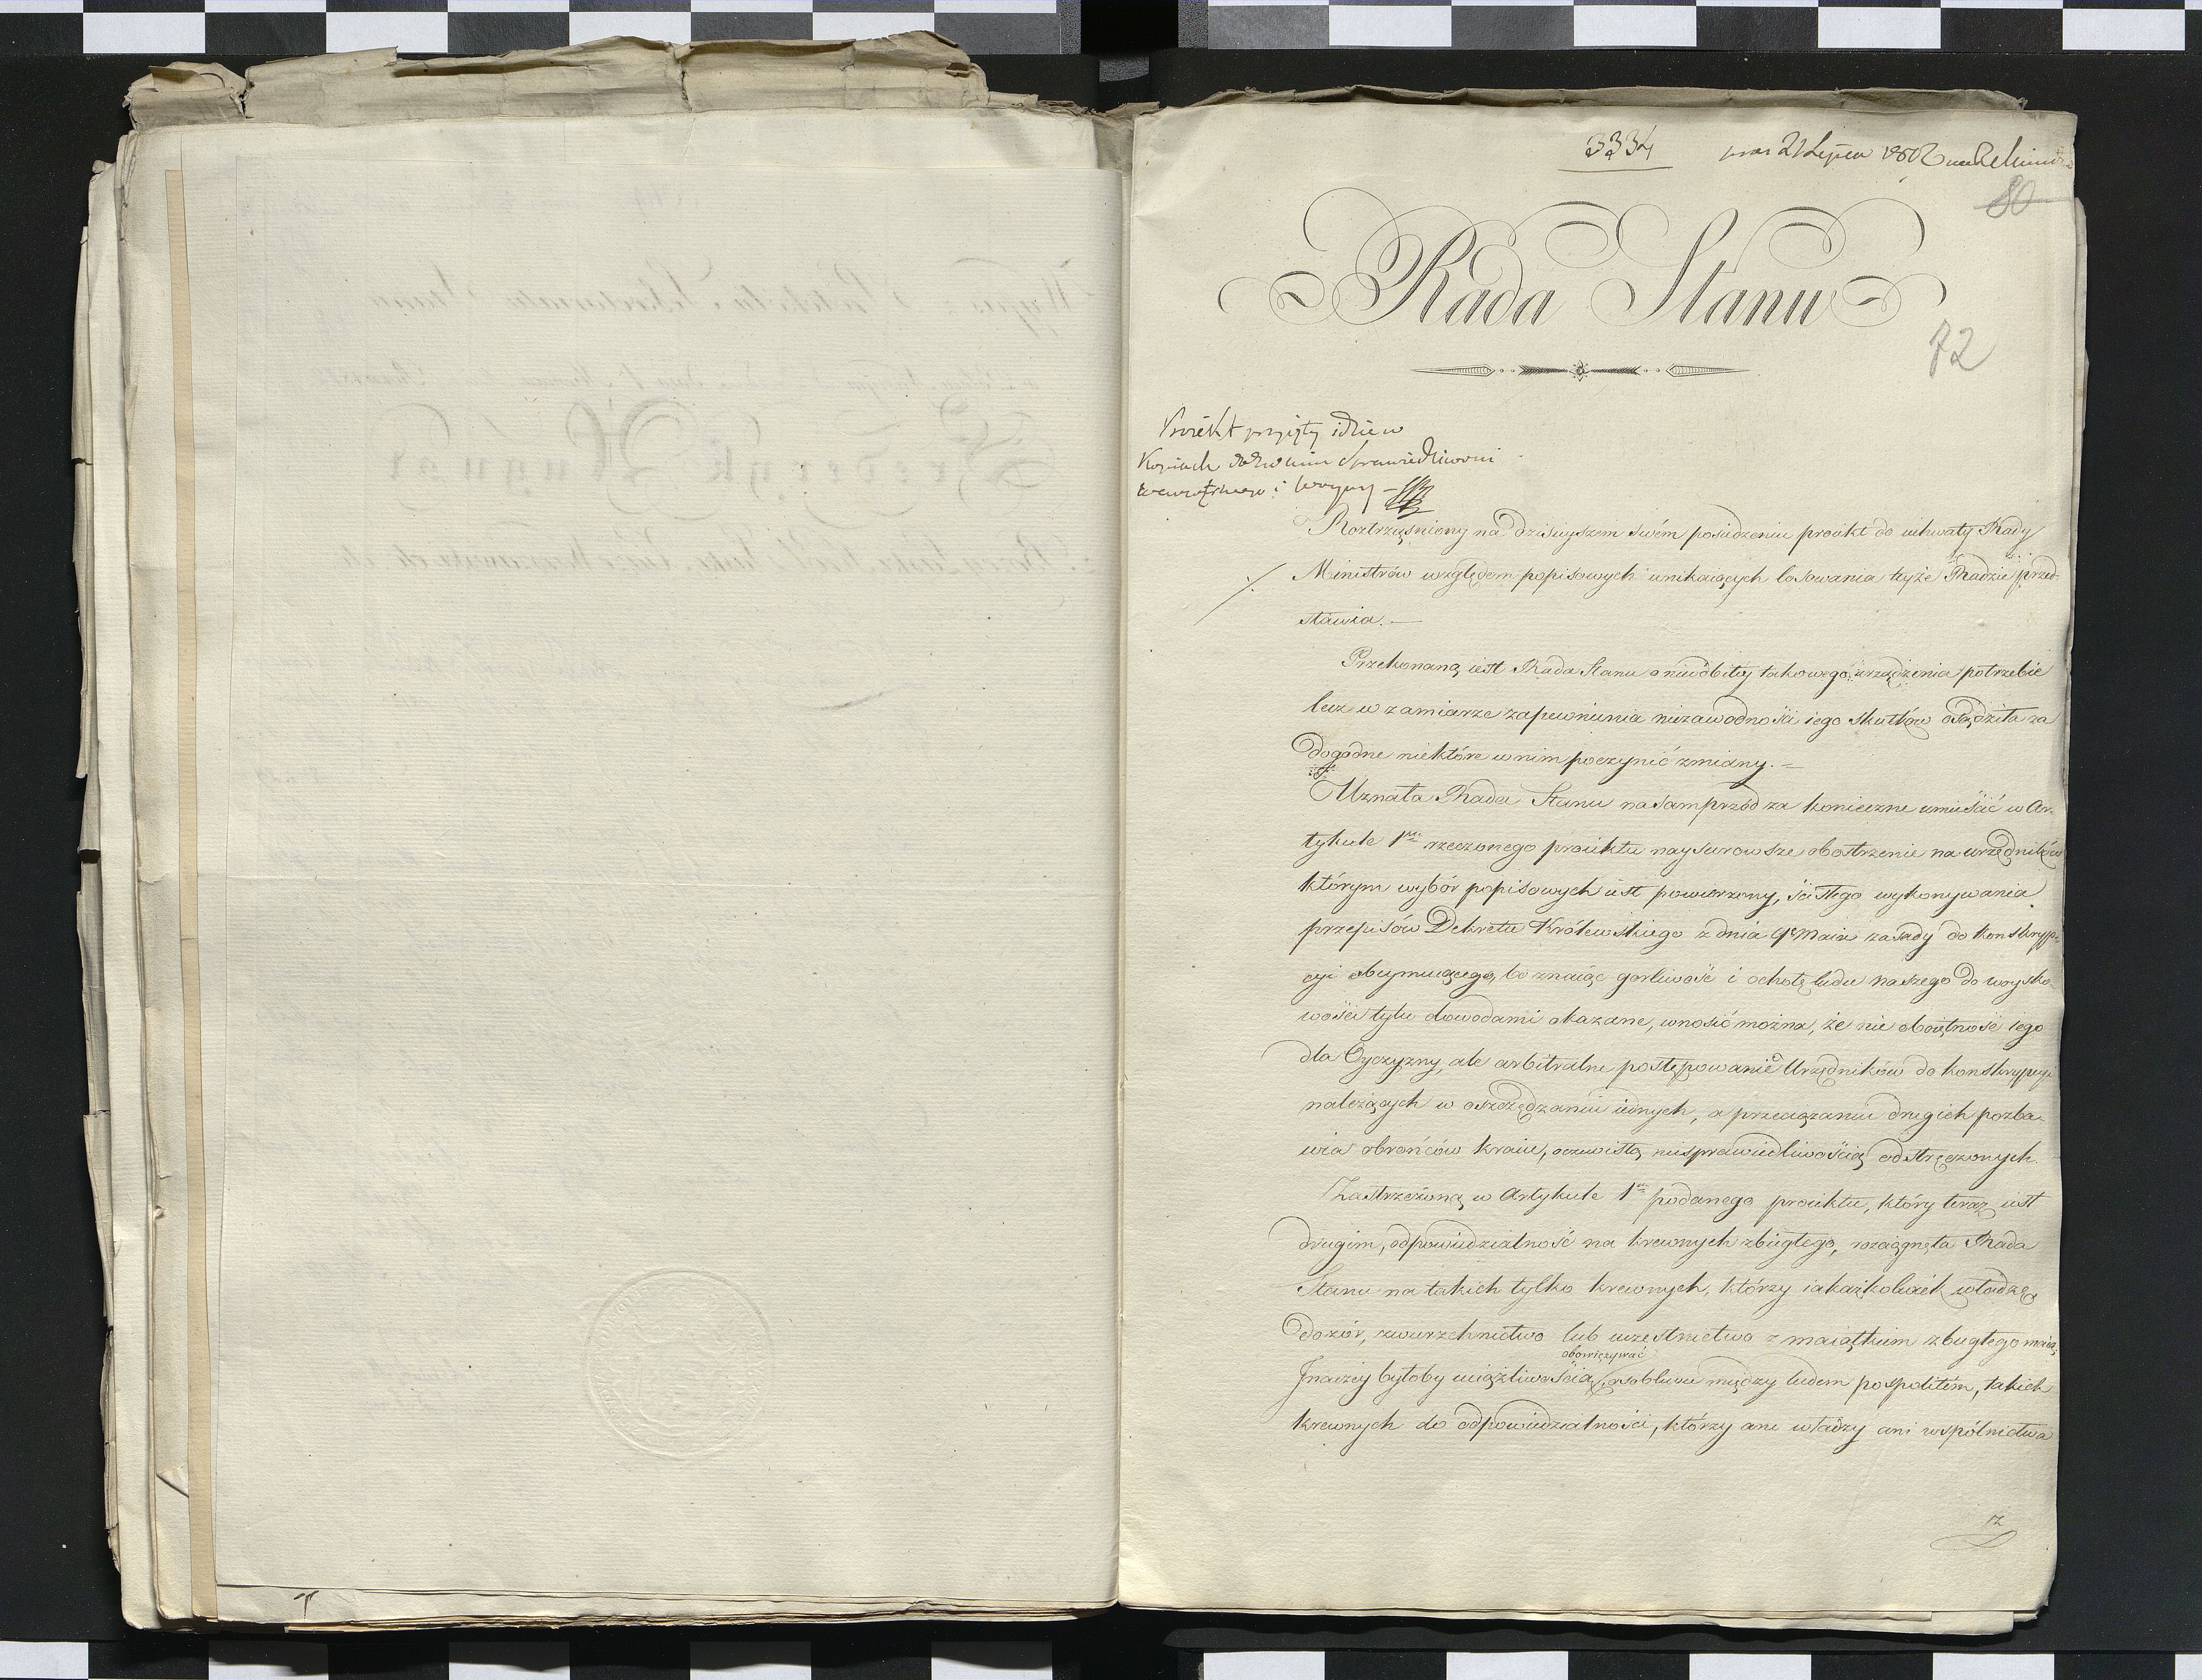 3334
21 Lipca 1808
80
Rada Stanu
72
Proiekt przyięty idzie w
Kopiach do Ministra Sprawiedliwości
Wewnętrznego i Woyny
Roztrząśniony na dzisieyszem swém posiedzeniu proiekt do uchwały Rady
Ministrów względem popisowych unikaiących losowania teyże Radzie przed-
stawia. —
Przekonaną iest Rada Stanu o nieodbitey takowego urządzenia potrzebie
lecz w zamiarze zapewnienia niezawodności iego skutków osądziła za
dogodne niektóre w nim poczynić zmiany. —
Uznała Rada Stanu nasamprzód za konieczne umieścić w Ar-
tykule 1m rzeczonego proiektu naysurowsze obostrzenie na urzędników
którym wybór popisowych iest powierzony, ścisłego wykonywania
przepisów Dekretu Królewskiego z dnia 9o Maia zasady do konskryp-
cyi obeymuiącego, bo znaiąc gorliwość i ochotę ludu naszego do woysko-
wości tylu dowodami okazane, wnosić można, że nie oboiętność iego
dla Oyczyzny, ale arbitralne postępowanie Urzędników do konskrypcyi
należących w oszczędzaniu iednych, a przeciążaniu drugich pozba-
wia obrońców kraiu, oczewistą niesprawiedliwością odstręczonych.
Zastrzeżoną w Artykule 1m podanego proiektu, który teraz iest
drugim, odpowiedzialność na krewnych zbiegłego, rozciągnęła Rada
Stanu na takich tylko krewnych, którzy iakążkolwiek władzę,
dozór, zwierzchnictwo lub uczestnictwo z maiątkiem zbiegłego maią.
obowięzywać
Inaczey byłoby uciążliwością, osobliwie między ludem pospolitém, takich
krewnych do odpowiedzialności, którzy ani władzy ani wspólnictwa
z